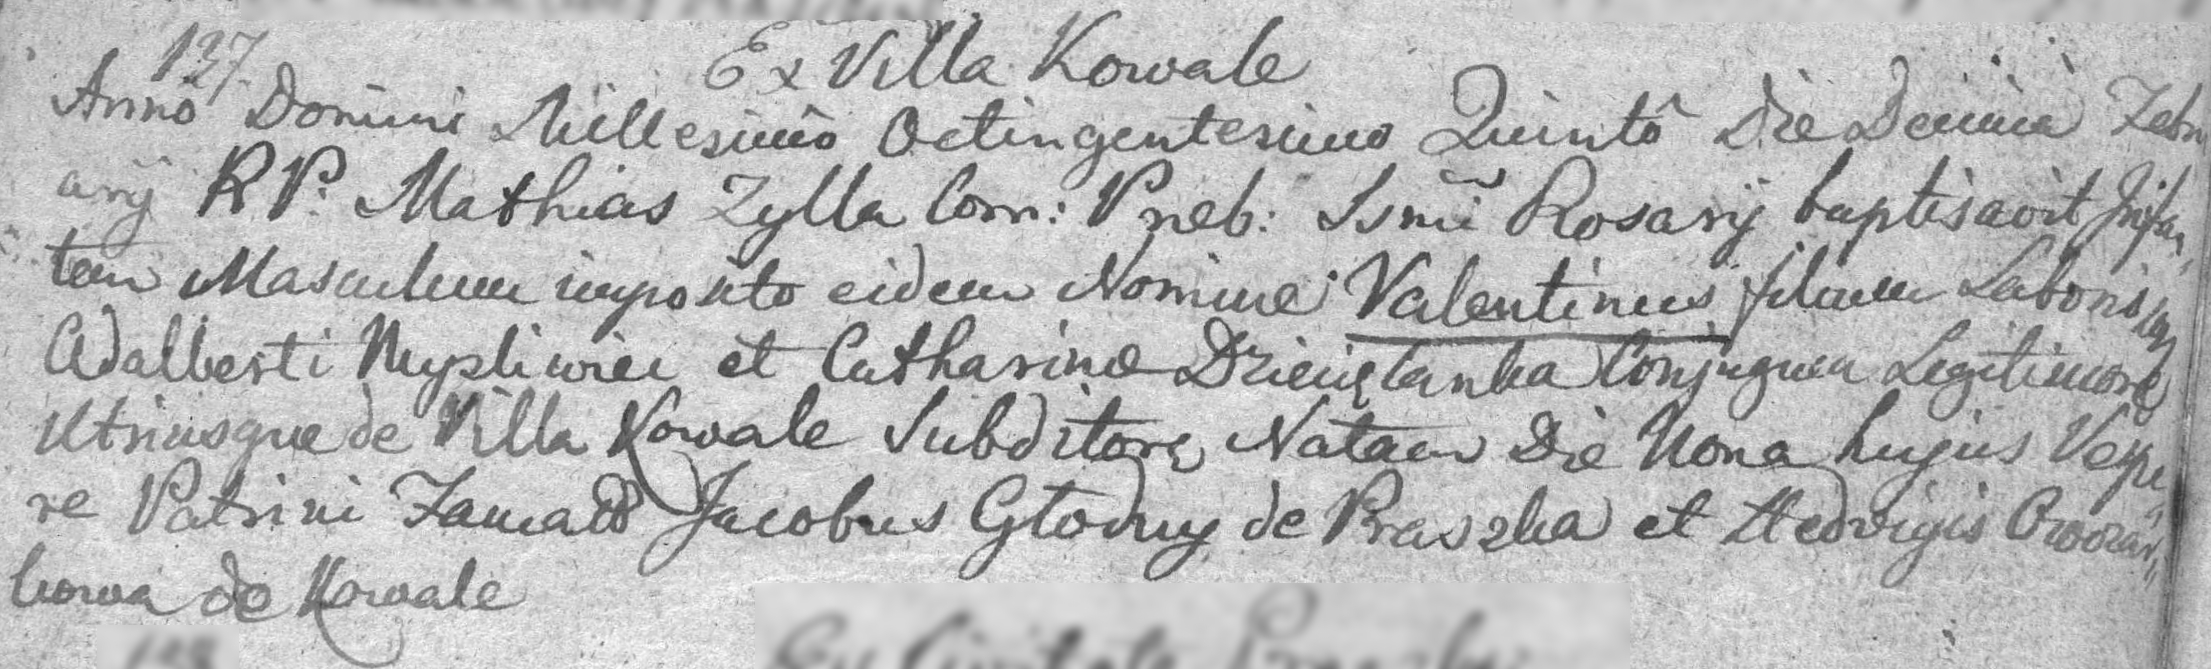 127.
Ex Villa Kowale
Anno Domini Millesimo Octingentesimo Quinto Die Decima Febru
arij R P: Mathias Zylla Com: Preb: Ssmi Rosarij baptisavit Infan
tem Masculum imposito eidem Nomine Valentinus filium Laboriosor
Adalberti Mysliwiec et Catharine Conjugum Legitimore
Utriusque de Villa Kowale Subditore Natum Die Nona hujus Vespe
re Patrini Jacobus Glodny de Praszka et Hedvigis
kowa de Kowale